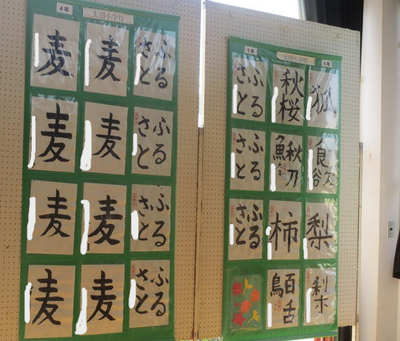 4年
麦
麦
ふるさと
麦
麦
ふるさと
麦
麦
ふるさと
麦
麦
ふるさと
ふるさと
秋桜
狐
ふるさと
秋刀魚
ふるさと
柿
梨
百舌鳥
梨